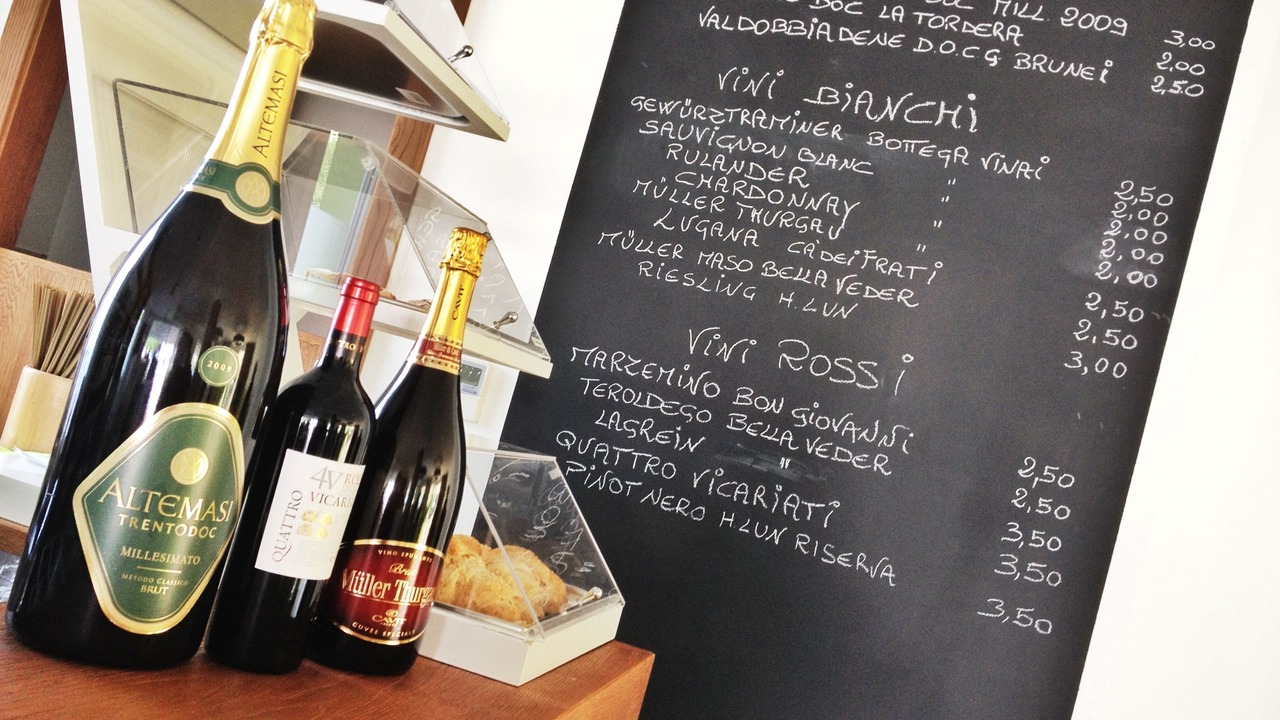 ALTEMASI
2009
ALTEMASI
TRENTODOC
MILLESIMATO
METODO CLASSICO
BRUT
4V
VICARI
QUATTRO
CAVIT
VINO SPUMANTE
Brut
Müller Thurga
CAVIT
CUVÉE SPECIALE
DOC MILL. 2009 3,00
DOC LA TORDERA 2,00
VALDOBBIADENE D.O.C.G BRUNEI 2,50
VINI BIANCHI
GEWÜRZTRAMINER BOTTEGA VINAI 2,50
SAUVIGNON BLANC " 2,00
RULANDER " 2,00
CHARDONNAY " 2,00
MÜLLER THURGAU 2,00
LUGANA CA' DEI FRATI 2,50
MÜLLER MASO BELLAVEDER 2,50
RIESLING H.LUN 3,00
VINI ROSSI
MARZEMINO BON GIOVANNI 2,50
TEROLDEGO BELLAVEDER 2,50
LAGREIN " 3,50
QUATTRO VICARIATI 3,50
PINOT NERO H.LUN RISERVA 3,50